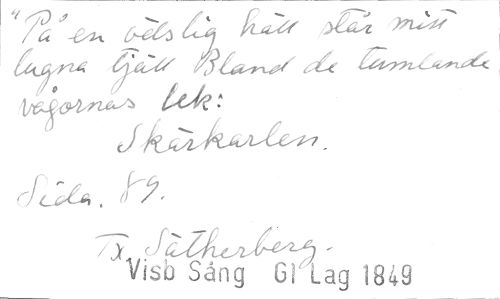 "På en ödslig häll står mitt
lugna tjäll Bland de tumlande
vågornas lek:
Skärkarlen.
Sida. 89.
Tx. Sätherberg.
Visb Sång Gl Lag 1849